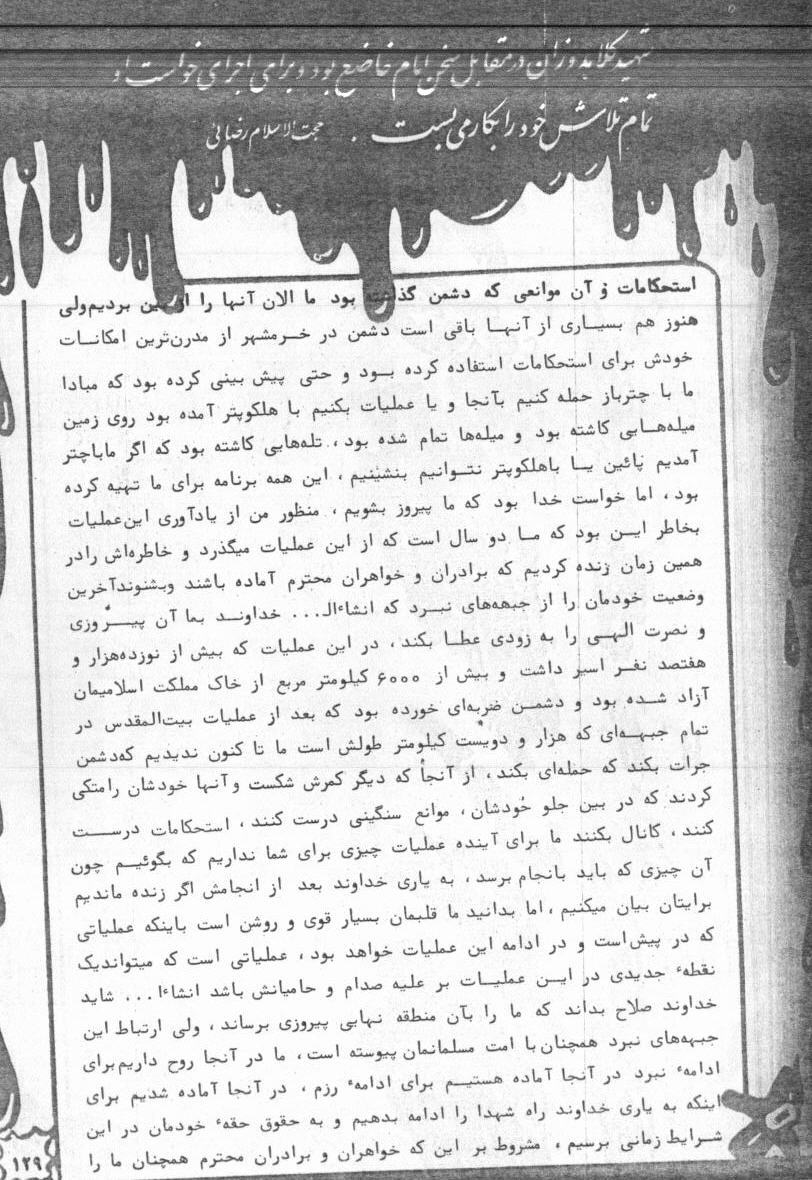 شهید کلاهدوزان در مقابل سخن امام خاضع بود و برای اجرای خواست او
تمام تلاش خود را بکار می بست . حجت الاسلام رضائی
استحکامات و آن موانعی که دشمن گذاشته بود ما الان آنها را از بین بردیم‌ولی
هنوز هم بسیاری از آنها باقی است دشمن در خرمشهر از مدرن‌ترین امکانات
خودش برای استحکامات استفاده کرده بود و حتی پیش بینی کرده بود که مبادا
ما با چترباز حمله کنیم بآنجا و یا عملیات بکنیم با هلکوپتر آمده بود روی زمین
میله‌هایی کاشته بود و میله‌ها تمام شده بود ، تله‌هایی کاشته بود که اگر ماباچتر
آمدیم پائین یا باهلکوپتر نتوانیم بنشینیم ، این همه برنامه برای ما تهیه کرده
بود ، اما خواست خدا بود که ما پیروز بشویم ، منظور من از یادآوری این‌عملیات
بخاطر این بود که ما دو سال است که از این عملیات میگذرد و خاطره‌اش رادر
همین زمان زنده کردیم که برادران و خواهران محترم آماده باشند وبشنوندآخرین
وضعیت خودمان را از جبهه‌های نبرد که انشاءالـ... خداوند بما آن پیروزی
و نصرت الهی را به زودی عطا بکند ، در این عملیات که بیش از نوزده‌هزار و
هفتصد نفر اسیر داشت و بیش از ۶۰۰۰ کیلومتر مربع از خاک مملکت اسلامیمان
آزاد شده بود و دشمن ضربه‌ای خورده بود که بعد از عملیات بیت‌المقدس در
تمام جبهه‌ای که هزار و دویست کیلومتر طولش است ما تا کنون ندیدیم که‌دشمن
جرات بکند که حمله‌ای بکند ، از آنجا که دیگر کمرش شکست و آنها خودشان رامتکی
کردند که در بین جلو خودشان ، موانع سنگینی درست کنند ، استحکامات درست
کنند ، کانال بکنند ما برای آینده عملیات چیزی برای شما نداریم که بگوئیم چون
آن چیزی که باید بانجام برسد ، به یاری خداوند بعد از انجامش اگر زنده ماندیم
برایتان بیان میکنیم ، اما بدانید ما قلبمان بسیار قوی و روشن است باینکه عملیاتی
که در پیش‌است و در ادامه این عملیات خواهد بود ، عملیاتی است که میتواندیک
نقطهء جدیدی در این عملیات بر علیه صدام و حامیانش باشد انشاءا... شاید
خداوند صلاح بداند که ما را بآن منطقه نهایی پیروزی برساند ، ولی ارتباط این
جبهه‌های نبرد همچنان با امت مسلمانمان پیوسته است ، ما در آنجا روح داریم‌برای
ادامهء نبرد در آنجا آماده هستیم برای ادامهء رزم ، در آنجا آماده شدیم برای
اینکه به یاری خداوند راه شهدا را ادامه بدهیم و به حقوق حقهء خودمان در این
شرایط زمانی برسیم ، مشروط بر این که خواهران و برادران محترم همچنان ما را
۱۲۹